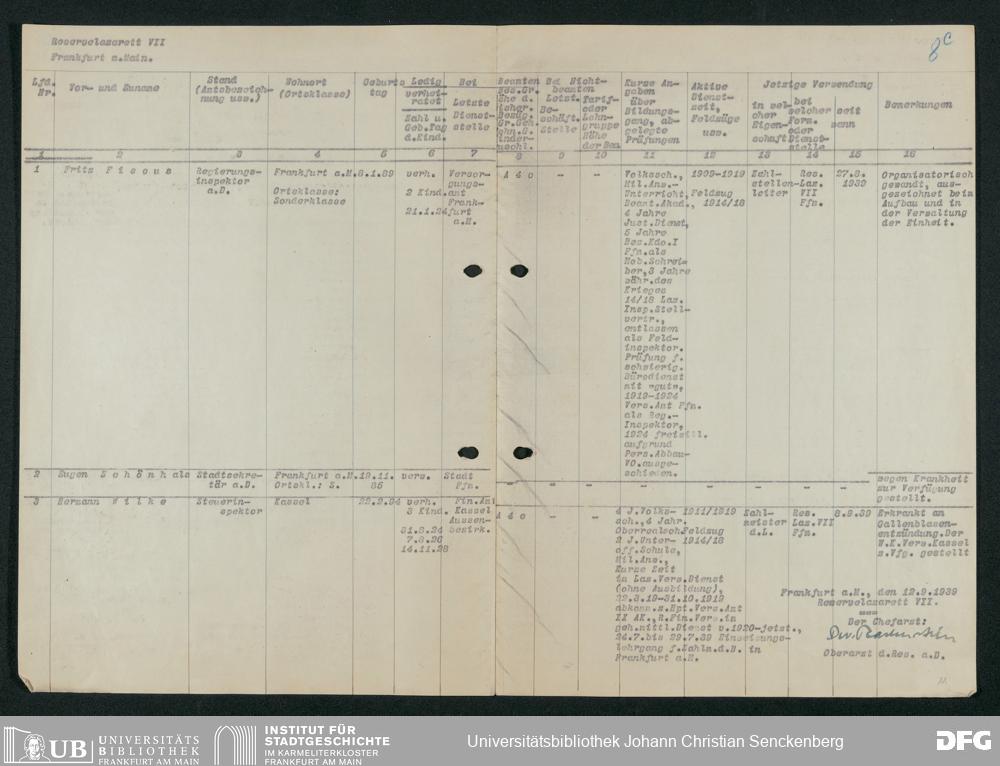 Reservelazarett VII
Frankfurt a.Main.
8c
Lfd. Nr.
Vor- und Zuname
Stand (Amtsbezeichnung usw.)
Wohnort (Ortsklasse)
Geburtstag
Ledig verheiratet Zahl u. Geb.Tag d.Kind.
Letzte Dienststelle
Bei Beamten
Bei Nichtbeamten
Letzt. Beschäft. Stelle
Tarif- oder Lohngruppe
Kurze Angaben über Bildungsgang, abgelegte Prüfungen
Aktive Dienstzeit, Feldzüge usw.
Jetzige Verwendung
in welcher Eigenschaft
bei welcher Form. oder Dienststelle
seit wann
Bemerkungen
1 2 3 4 5 6 7 8 9 10 11 12 13 14 15 16
1
Fritz F i s c u s
Regierungs-
inspektor
a.D.
Frankfurt a.M.
Ortsklasse:
Sonderklasse
8.1.89
verh.
2 Kind.
21.1.24
Versor-
gungs-
amt
Frank-
furt
a.M.
A 4 c
–
–
Volkssch.,
Mil.Anw.-
Unterricht,
Beamt.Akad.,
4 Jahre
Just.Dienst,
5 Jahre
Bez.Kdo.I
Ffm.als
Mob.Schrei-
ber,3 Jahre
währ.des
Krieges
14/18 Laz.
Insp.Stell-
vertr.,
entlassen
als Feld-
inspektor.
Prüfung f.
schwierig.
Bürodienst
mit "gut",
1919-1924
Vers.Amt Ffm.
als Reg.-
Inspektor,
1924 freiwill.
aufgrund
Pers.Abbau-
VO.ausge-
schieden.
1909-1919
Feldzug
1914/18
Zahl-
stellen-
leiter
Res.
Laz.
VII
Ffm.
27.8.
1939
Organisatorisch
gewandt, aus-
gezeichnet beim
Aufbau und in
der Verwaltung
der Einheit.
2
Eugen S c h ö n h als
Stadtsekre-
tär a.D.
Frankfurt a.M.
Ortskl.: S.
19.11.
86
verw.
Stadt
Ffm.
– – – – – – – –
wegen Krankheit
zur Verfügung
gestellt.
3
Hermann W i l k e
Steuerin-
spektor
Kassel
22.2.94
verh.
3 Kind.
31.8.24
7.8.26
14.11.28
Fin.Amt
Kassel
Aussen-
bezirk.
A 4 c
–
–
4 J.Volks-
sch.,4 Jahr.
Oberrealsch.
2 J.Unter-
off.Schule,
Mil.Anw.,
Kurze Zeit
in Laz.Verw.Dienst
(ohne Ausbildung),
22.3.19-31.10.1919
abkomm.z.Hpt.Vers.Amt
XX AK., R.Fin.Verw.in
geh.mittl.Dienst v.1920-jetzt.,
24.7.bis 29.7.39 Einweisungs-
lehrgang f.Zahlm.d.B. in
Frankfurt a.M.
1911/1919
Feldzug
1914/18
Zahl-
meister
d.L.
Res.
Laz.VII
Ffm.
8.9.39
Erkrankt an
Gallenblasen-
entzündung.Der
W.K.Verw.Kassel
z.Vfg. gestellt
Frankfurt a.M., den 12.9.1939
Reservelazarett VII.
Der Chefarzt:
Oberarzt d.Res. a.D.
UB UNIVERSITÄTS
BIBLIOTHEK
FRANKFURT AM MAIN
INSTITUT FÜR
STADTGESCHICHTE
IM KARMELITERKLOSTER
FRANKFURT AM MAIN
Universitätsbibliothek Johann Christian Senckenberg
DFG